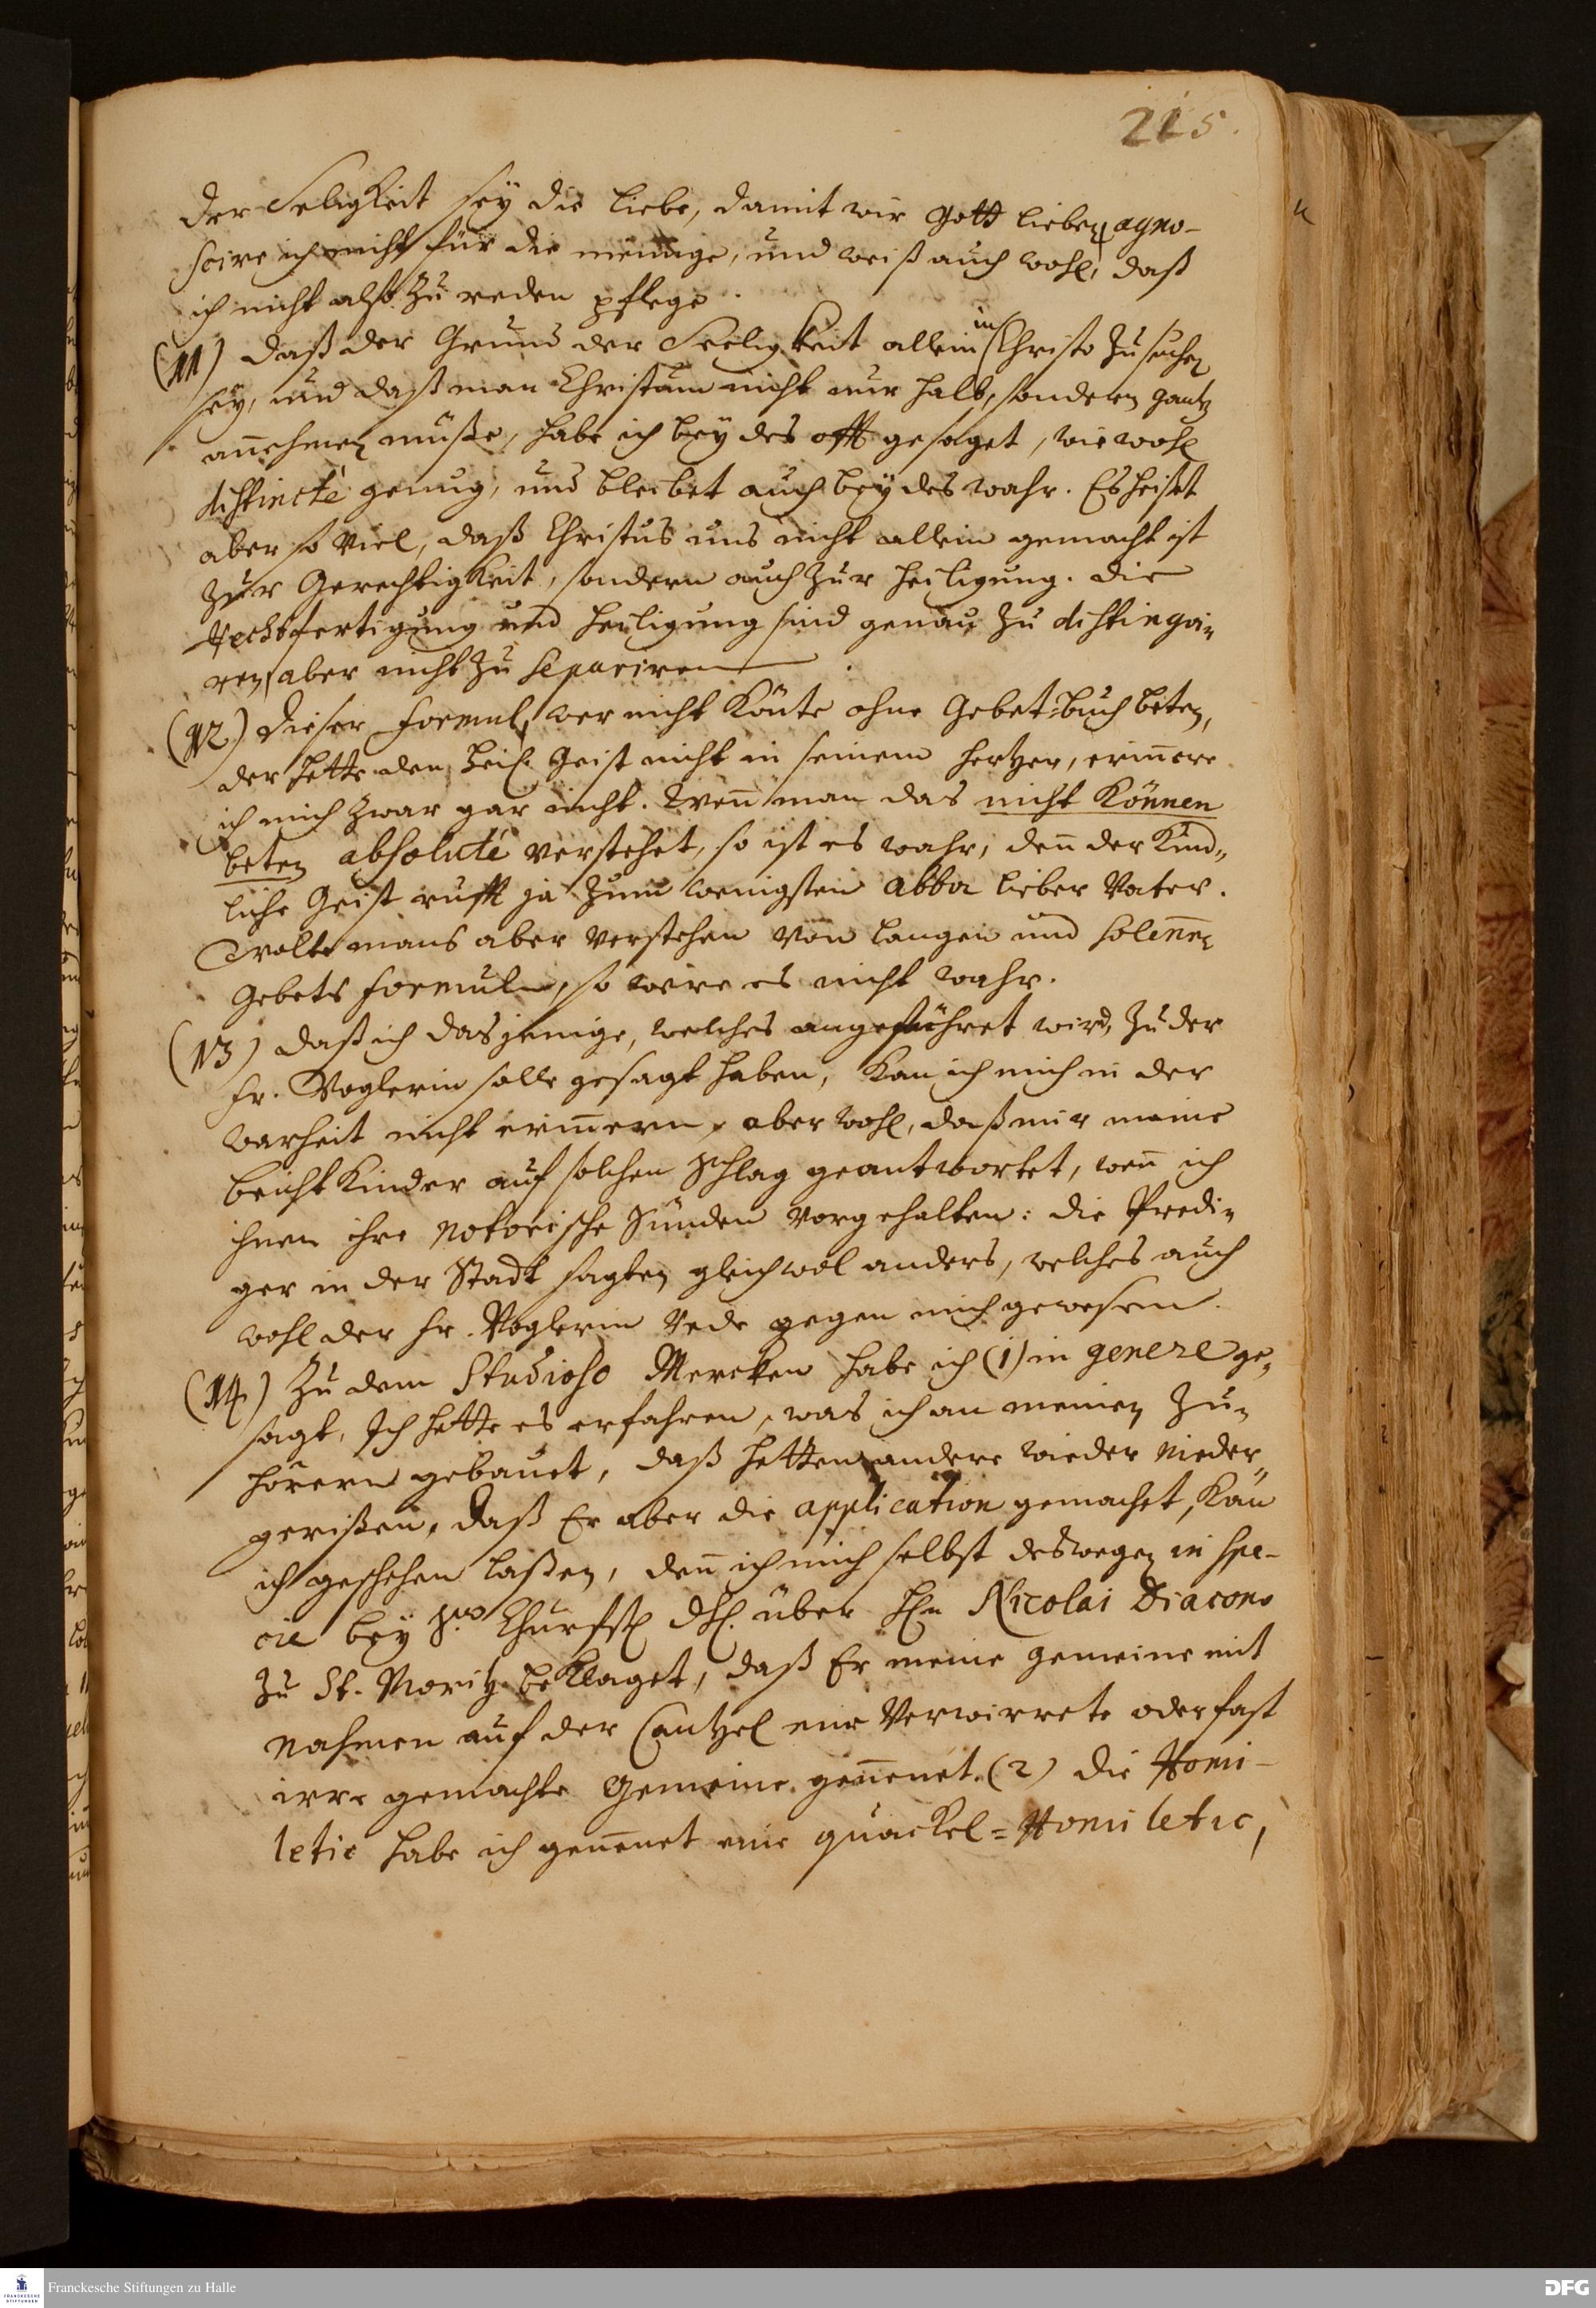 215.
der Seligkeit sey die Liebe, damit wir Gott lieben, agno-
scire ich nicht für die meinige, und weiß auch wohl, daß
ich nicht also zu reden pflege.
(11) Daß der Grund der Seeligkeit allein in Christo zu suchen
sey, und daß man Christum nicht nur halb, sondern gantz
añehmen müße, habe ich beydes offt gesaget, wiewohl
distincte genug, und bleibet auch beydes wahr. Es heiset
aber so viel, daß Christus uns nicht allein gemacht ist
zur Gerechtigkeit, sondern auch zur Heiligung. Die
Rechtfertigung und Heiligung sind genau zu distingui-
ren, aber nicht zu separiren.
(12) Dieser Formul, wer nicht könte ohne Gebet-buch beten,
der hette den Heil. Geist nicht in seinem Hertzen, eriñere
ich mich zwar gar nicht. Weñ man das nicht können
beten absolute verstehet, so ist es wahr, deñ der kind-
liche Geist rufft ja zum wenigsten Abba lieber Vater.
Wolte mans aber verstehen von langen und soleñen
Gebets Formuln, so were es nicht wahr.
(13) Daß ich dasjenige, welches angeführet wird, zu der
Fr. Voglerin solle gesagt haben, kan ich mich in der
warheit nicht eriñern, aber wohl, daß mir meine
beicht Kinder auf solchen Schlag geantwortet, weñ ich
ihnen ihre notorische Sünden vorgehalten: die Predi-
ger in der Stadt sagten gleichwol anders, welches auch
wohl der Fr. Voglerin Rede gegen mich gewesen.
(14) Zu dem Studioso Mercken habe ich (1) in genere ge-
sagt, Ich hette es erfahren, was ich an meinen Zu-
hörern gebauet, daß hetten andere wieder nieder-
gerißen, daß Er aber die application gemachet, kan
ich geschehen laßen, deñ ich mich selbst deswegen in spe-
cie bey Sr. Churfstl. Dhl. über Hn Nicolai Diacono
zu St. Moritz beklaget, daß Er meine Gemeine mit
Nahmen auf der Cantzel eine verwirrete oder fast
irre gemachte Gemeine geñenet. (2) Die Homi-
letic habe ich geñenet eine quackel-Homiletic,
Franckesche Stiftungen zu Halle
FRANCKESCHE STIFTUNGEN
DFG